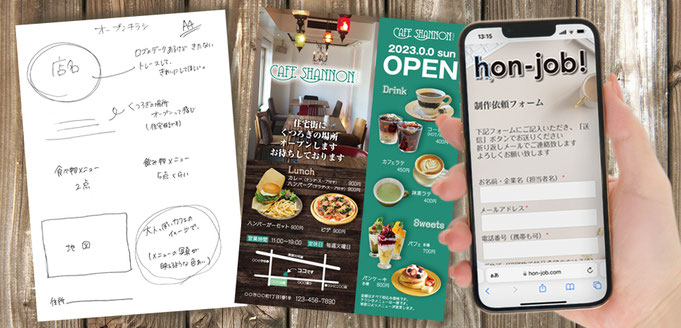 オープンチラシ
A4
店名
ロゴのデータあるけど きたない
トレースして、
きれいにしてほしい。
くつろぎの場所
オープンって感じ
(住宅街です)
食べ物メニュー
2点
飲み物メニュー
5点くらい
地図
大人っぽいカフェの
イメージで、
(メニューの写真が
映えるような色あい。)
住所
CAFE SHANNON
住宅街に
くつろぎの場所
オープンします
お待ちしております
Lunch
ハンバーガーセット 900円
ピザ 900円
営業時間 11:00~19:00 定休日 毎週火曜日
ココです
123-456-7890
CAFE SHANNON
2023.0.0 sun
OPEN
Drink
カフェラテ
450円
抹茶ラテ
400円
Sweets
パフェ 各種
700円
パンケーキ
各種 700円
13:15
hon-job!
制作依頼フォーム
下記フォームにご記入いただき、「送
信」ボタンでお送りください
折り返しメールでご連絡致します
よろしくお願い致します
お名前・企業名(担当者名) *
メールアドレス *
電話番号(携帯も可) *
ぁあ hon-job.com